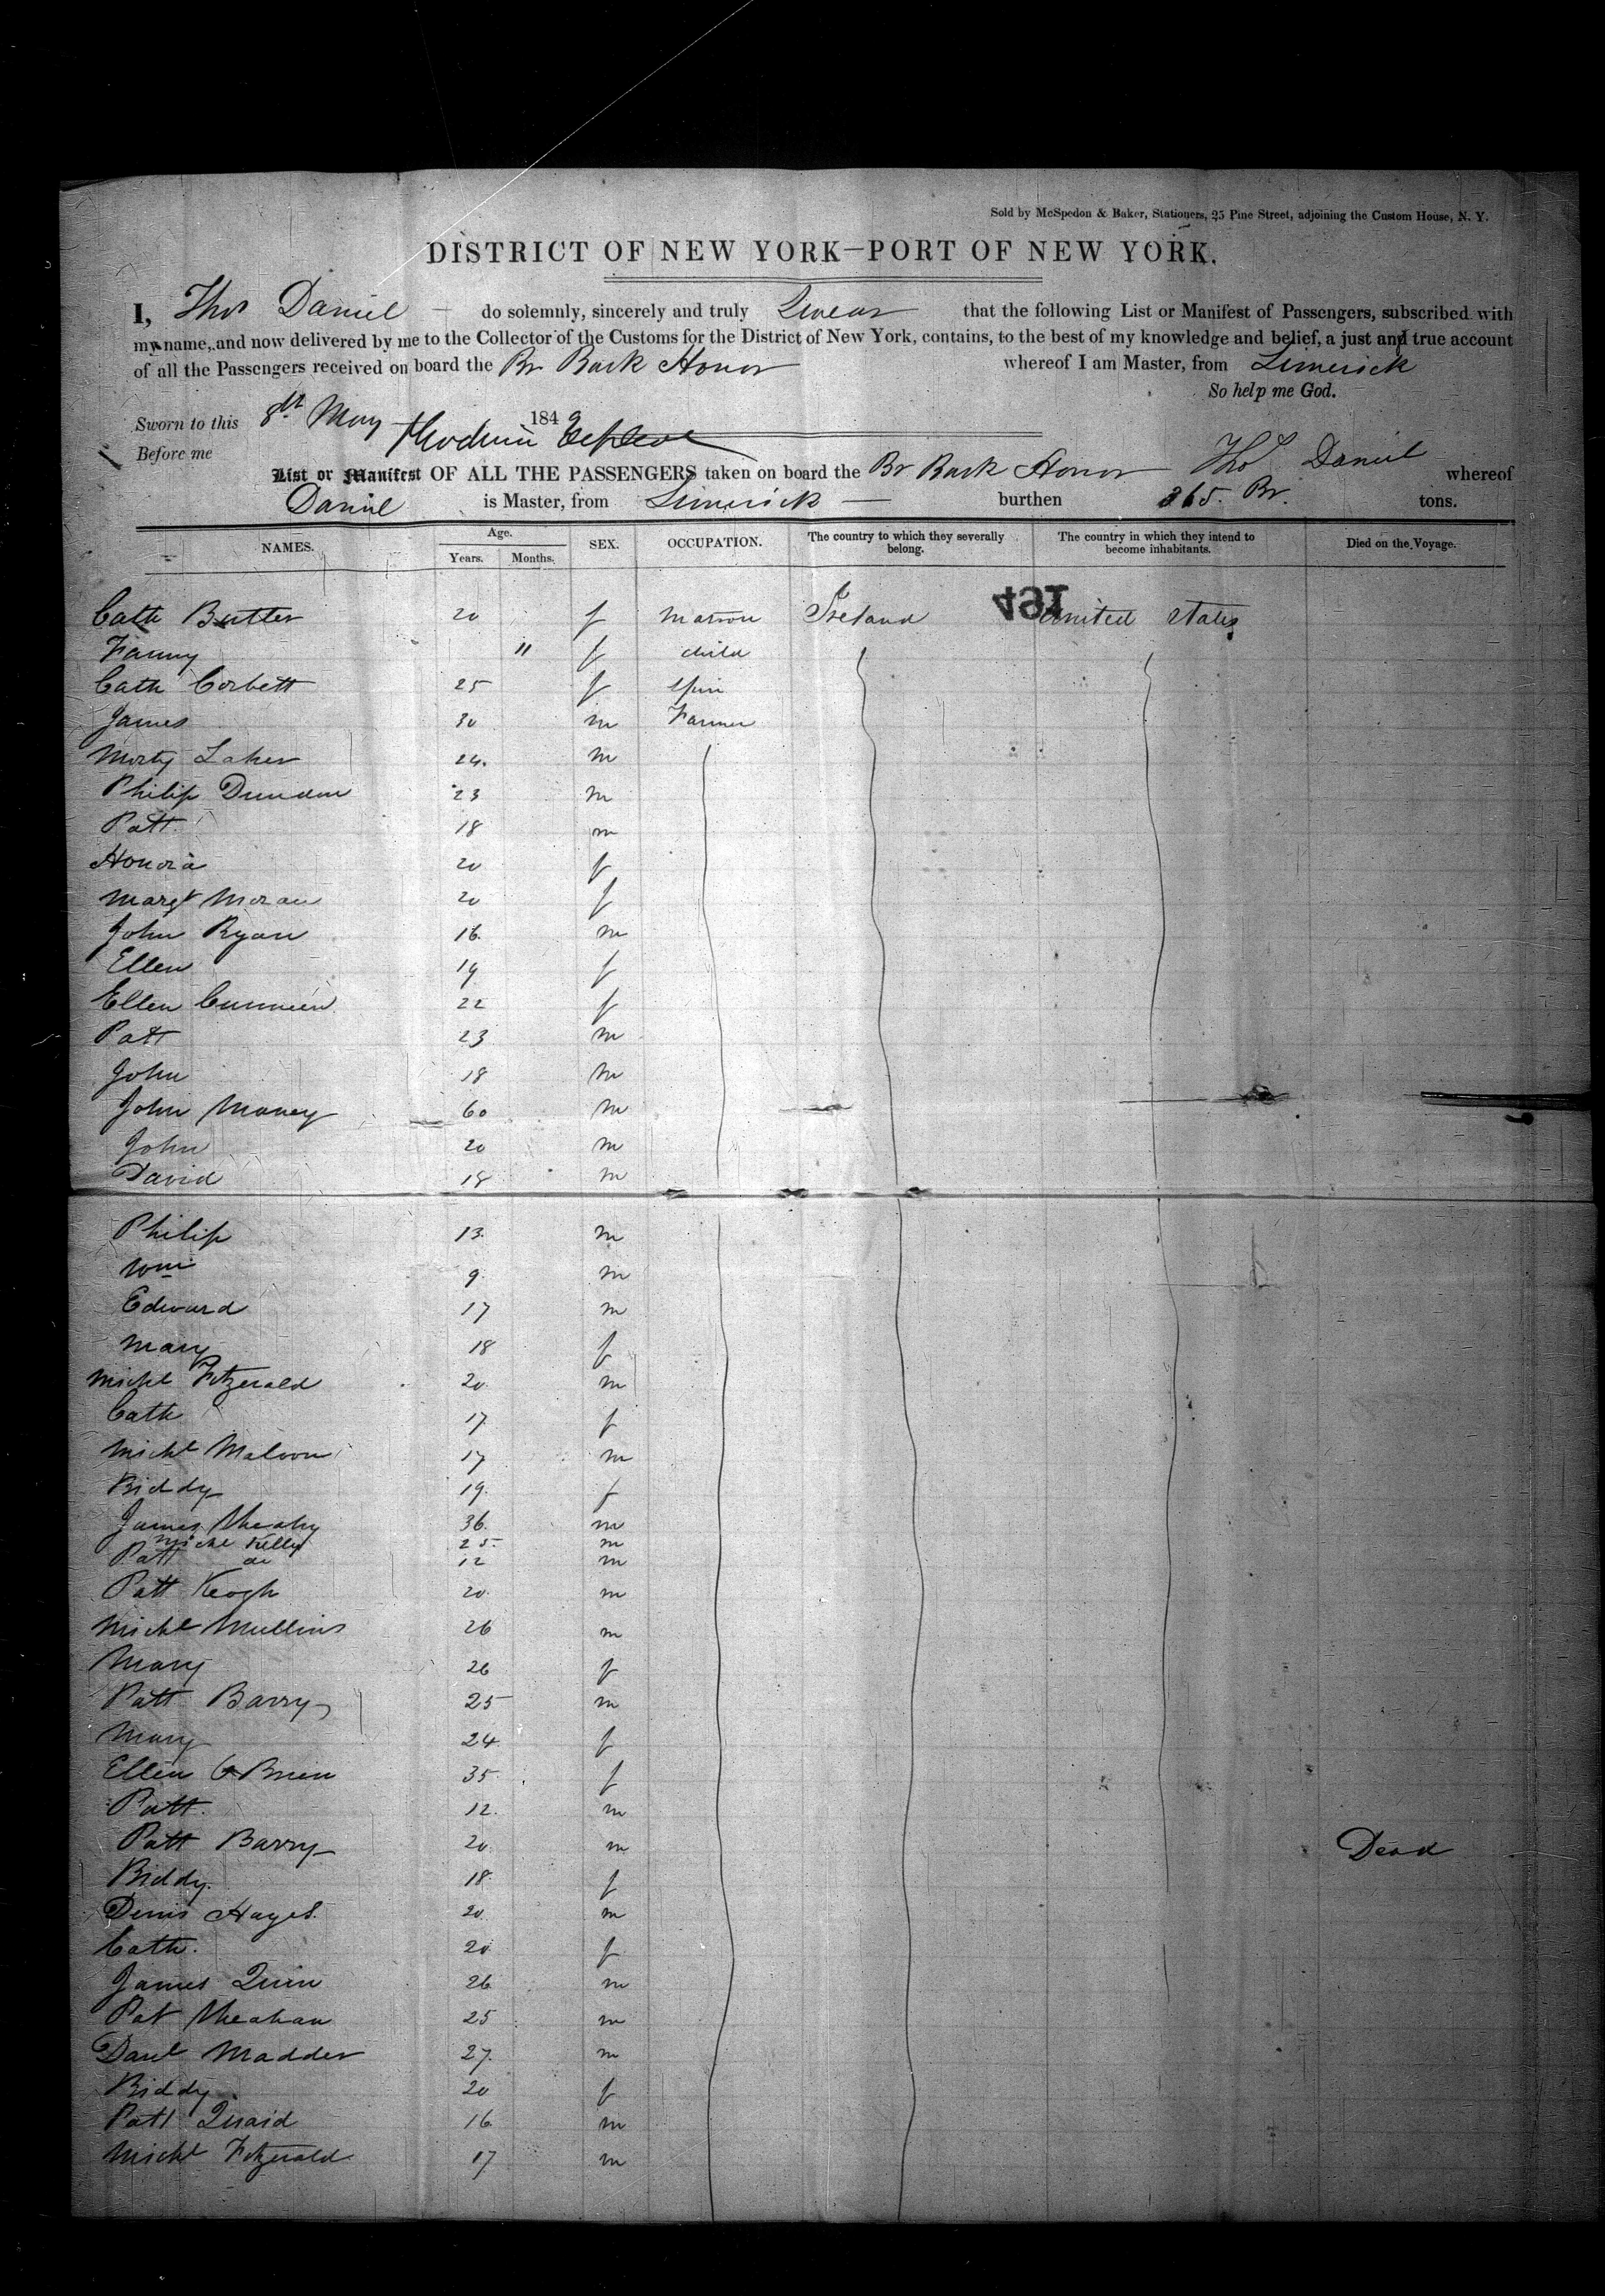 Sold by McSpedon & Baker, Stationers, 25 Pine Street, adjoining the Custom House, N. Y.
DISTRICT OF NEW YORK—PORT OF NEW YORK.
I, Thos Daniel do solemnly, sincerely and truly Swear that the following List or Manifest of Passengers, subscribed with
my name, and now delivered by me to the Collector of the Customs for the District of New York, contains, to the best of my knowledge and belief, a just and true account
of all the Passengers received on board the Br Bark Honor whereof I am Master, from Limerick
So help me God.
Sworn to this 8th May 184
Before me Thos Daniel
List or Manifest OF ALL THE PASSENGERS taken on board the Br Bark Honor whereof
Daniel is Master, from Limerick — burthen 365. Br. tons.
NAMES. Age. Years. Months. SEX. OCCUPATION. The country to which they severally belong. The country in which they intend to become inhabitants. Died on the Voyage.
491
Cath Butler 20 f Matron Ireland United States
Fanny 11 f child
Cath Corbett 25 f Spin
James 30 m Farmer
Morty 24. m
Philip Dundon 23 m
Patt 18 m
Honora 20 f
Margt Moran 20 f
John Ryan 16. m
Ellen 19 f
Ellen 22 f
Patt 23 m
John 18 m
John Money 60 m
John 20 m
David 18 m
Philip 13. m
Wm 9. m
Edward 17 m
Mary 18 f
Michl Fitzgerald 20. m
Cath 17 f
Michl Maloon 17 m
Biddy 19. f
James Sheahy 36. m
Michl Kelly 25. m
Patt do 12 m
Patt Keogh 20. m
Michl Mullins 26 m
Mary 26 f
Patt Barry 25 m
Mary 24. f
Ellen O Brien 35 f
Patt. 12. m
Patt Barry 20. m Dead
Biddy. 18. f
Denis Hayes. 20. m
Cath. 20. f
James Quin 26 m
Pat Sheahan 25 m
Danl Madder 27. m
Biddy 20 f
Patt Quaid 16 m
Michl Fitzgerald 17 m